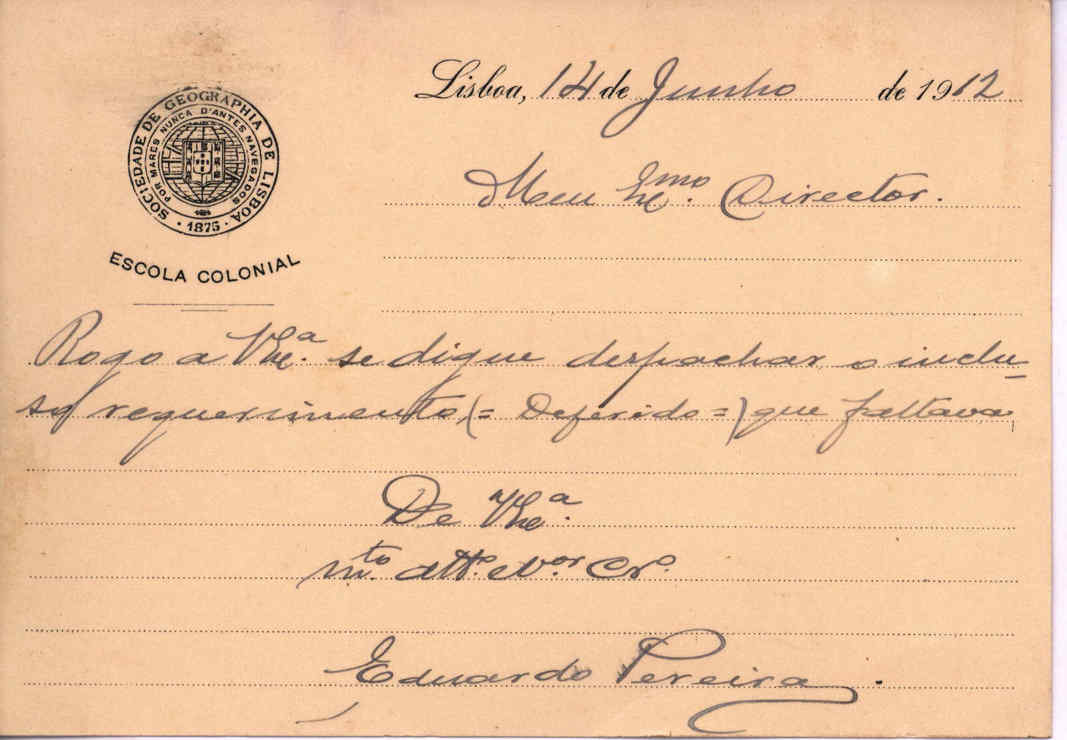 SOCIEDADE DE GEOGRAPHIA DE LISBOA
POR MARES NUNCA D'ANTES NAVEGADOS
· 1875 ·
ESCOLA COLONIAL
Lisboa, 14 de Junho de 1912
Meu Exmo. Director.
Rogo a V Exa. se digne despachar o inclu-
so requerimento (= Deferido =) que faltava,
De V Exa.
mto. atto. e Vor Cro.
Eduardo Pereira.